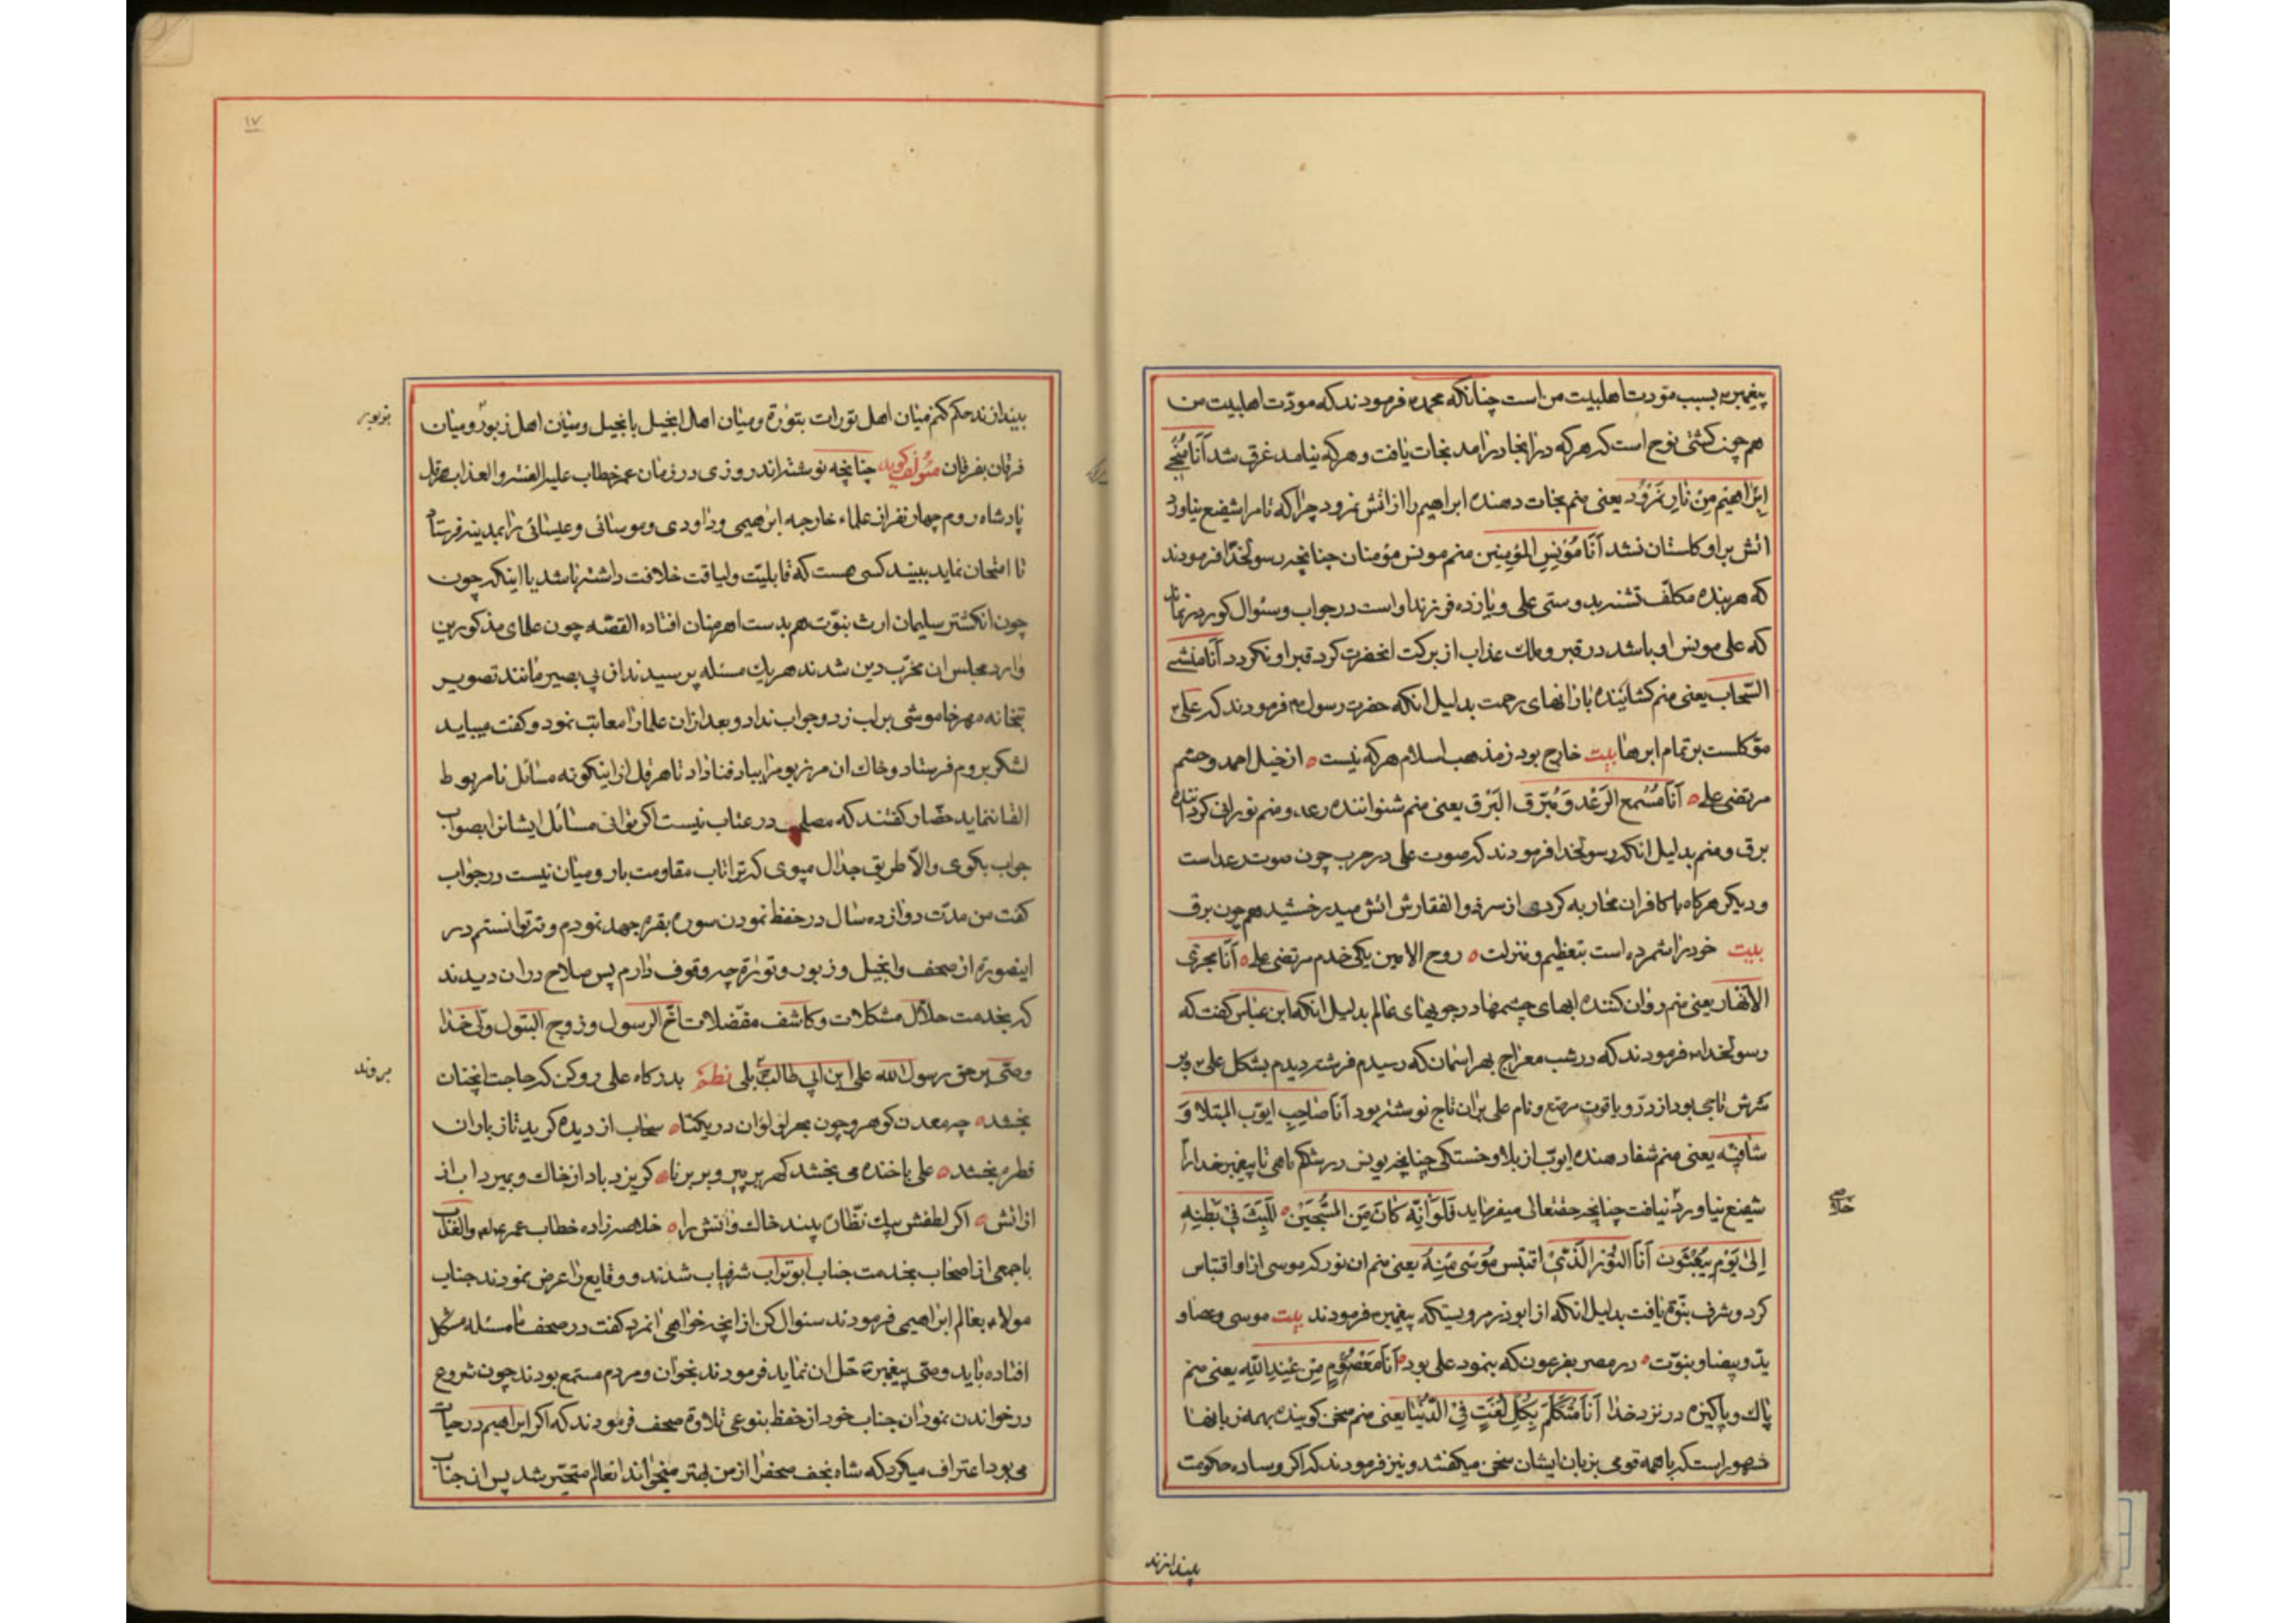 پیغمبرم بسبب مودت اهلبیت من است چنانکه محمدم فرمودند که مودّت اهلبیت من
هم چون کشتی نوح است که هرکه در انجا درامد نجات یافت و هرکه نیامد غرق شد اَنَا مُنْجی
اِبْرَاهیْم مِنْ نَارِ نَمْرُوْد یعنی منم نجات دهنده ابراهیم را از اتش نمرود چرا که تا مرا شفیع نیاورد
اتش بر او کلستان نشد اَنَا مُوْنِس المؤمِنین منم مونس مؤمنان چنانچه رسولخدا فرمودند
که هر بنده مکلف نشد بدوستی علی و یازده فرزند او است در جواب و سئوال کور در نماند
که علی مونس او باشد در قبر و ملک عذاب از برکت انحضرت کرد قبر او نکردد اَنَا مُنشئ
السّحاب یعنی منم کشاینده بارانهای رحمت بدلیل انکه حضرت رسول م فرمودند که علی
موکلست بر تمام ابرها بیت خارج بود ز مذهب اسلام هرکه نیست ه از خیل احمد و حشم
مرتضی علی ه اَنَا مُسْمع الرَعْد وَ مُبَرّق البَرْق یعنی منم شنواننده رعد و منم نورانی کرداننده
برق و منم بدلیل انکه رسولخدا فرمودند که صوت علی در حرب چون صوت رعد است
و دیکر هرکاه با کافران محاربه کردی از سر ذوالفقارش اتش میدرخشید هم چون برق
بیت خود را شمرده است بتعظیم و منزلت ه روح الامین یکی خدم مرتضی علی ه اَنَا مجری
الاَنْهار یعنی منم روان کننده ابهای چشمها در جویهای عالم بدلیل انکه ابن عباس کفت که
رسولخدا م فرمودند که در شب معراج بهر اسمان که رسیدم فرشته دیدم بشکل علی و بر
سرش تاجی بود از درّ و یاقوت مرصّع و نام علی بر ان تاج نوشته بود اَنَا صَاحِب ایّوب المبتلا وَ
شافیه یعنی منم شفا دهنده ایوب از بلا و خستکی چنانچه یونس در شکم ماهی تا پیغمبر خدا را
شفیع نیاورد نیافت چنانچه حقتعالی میفرماید فَلَوْلا اَنّه کَانَ مِنَ المُسَبّحیْن ه لَلَبِثَ فیْ بَطْنِهِ
اِلیٰ یَوْمِ یُبْعَثُون اَنَا النُوْر الَّذیْ اقتَبَس مُوْسیٰ مِنْهُ یعنی منم ان نور که موسی از او اقتباس
کرد و شرف نبوّة یافت بدلیل انکه از ابوذر مرویستکه پیغمبرم فرمودند بیت موسی و عصا و
ید و بیضا و نبوّت ه در مصر بفرعون که بنمود علی بود ه اَنَا مَعْصُوْمٍ مِن عِنْدِ اللّهِ یعنی منم
پاک و پاکیزه در نزد خدا اَنَا مُتَکَلِّم بِکُلّ لُغَتٍ فِیْ الدُّنْیَا یعنی منم سخن کوینده بهمه زبانها
مشهور است که با همه قومی بزبان ایشان سخن میکفتند و نیز فرمودند که اکر وساده حکومت
بیندازند
خلاصی
۱۷
بیندازند حکم کنم میان اهل تورات بتوراة و میان اهل انجیل بانجیل و میان اهل زبور و میان
بزبور
فرقان بفرقان مئولف کوید چنانچه نوشته اند روزی در زمان عمر خطاب علیه اللعنه و العذاب هرقل
پادشاه روم چهار نفر از علماء خارجه ابرهیمی و داودی و موسائی و عیسائی را بمدینه فرستاد
تا امتحان نماید ببیند کسی هست که قابلیّت و لیاقت خلافت داشته باشد یا اینکه چون
چون انکشتر سلیمان ارث نبوّت هم بدست اهرمنان افتاده القصّه چون علمای مذکورین
وارد مجلس ان مخرّب دین شدند هر یک مسئله پرسیدند ان بی بصیر مانند تصویر
بتخانه مهر خاموشی بر لب زد و جواب نداد و بعد از ان علمانرا معاتب نمود و کفت میباید
لشکر بروم فرستاد و خاک ان مرز بوم را بباد فنا داد تا هرقل از اینکونه مسائل نامربوط
القا ننماید حضّار کفتند که مصلحت در عتاب نیست اکر توانی مسائل ایشانرا بصواب
جواب بکوی والاّ طریق جدال مپوی که ترا تاب مقاومت با رومیان نیست در جواب
کفت من مدّت دوازده سال در حفظ نمودن سوره بقره جهد نمودم و نتوانستم در
اینصورة از صحف و انجیل و زبور و توراة چه وقوف دارم پس صلاح در ان دیدند
که بخدمت حلاّل مشکلات و کاشف مفضلات اخ الرسول و زوج البتول ولی خدا
بروند
و صّی بر حق رسول الله علی ابن ابی طالب بلی نظم بدرکاه علی رو کن که حاجت انچنان
بخشد ه چه معدن کوهر و چون بحر لؤلؤان در یکتا ه سحاب از دیده کرید تا ز باران
قطره بخشد ه علی با خنده می بخشد کهر بر پیر و بر برنا ه کریزد باد از خاک و بمیرد اب از
از اتش ه اکر لطفش بیک نظّاره بیند خاک و اتش را ه خلاصه زاده خطاب عمر
با جمعی از اصحاب بخدمت جناب ابوتراب شرفیاب شدند و وقایع را عرض نمودند جناب
مولا م بعالم ابراهیمی فرمودند سئوال کن از انچه خواهی انمرد کفت در صحف ما مسئله مشکل
افتاده باید وصی پیغمبر حلّ ان نماید فرمودند بخوان و مردم مستمع بودند چون شروع
در خواندن نمود ان جناب خود از حفظ بنوعی تلاوة صحف فرمودند که اکر ابراهیم در حیات
می بود اعتراف میکرد که شاه نجف صحف را از من بهتر میخواند انعالم متحیّر شد پس ان جناب